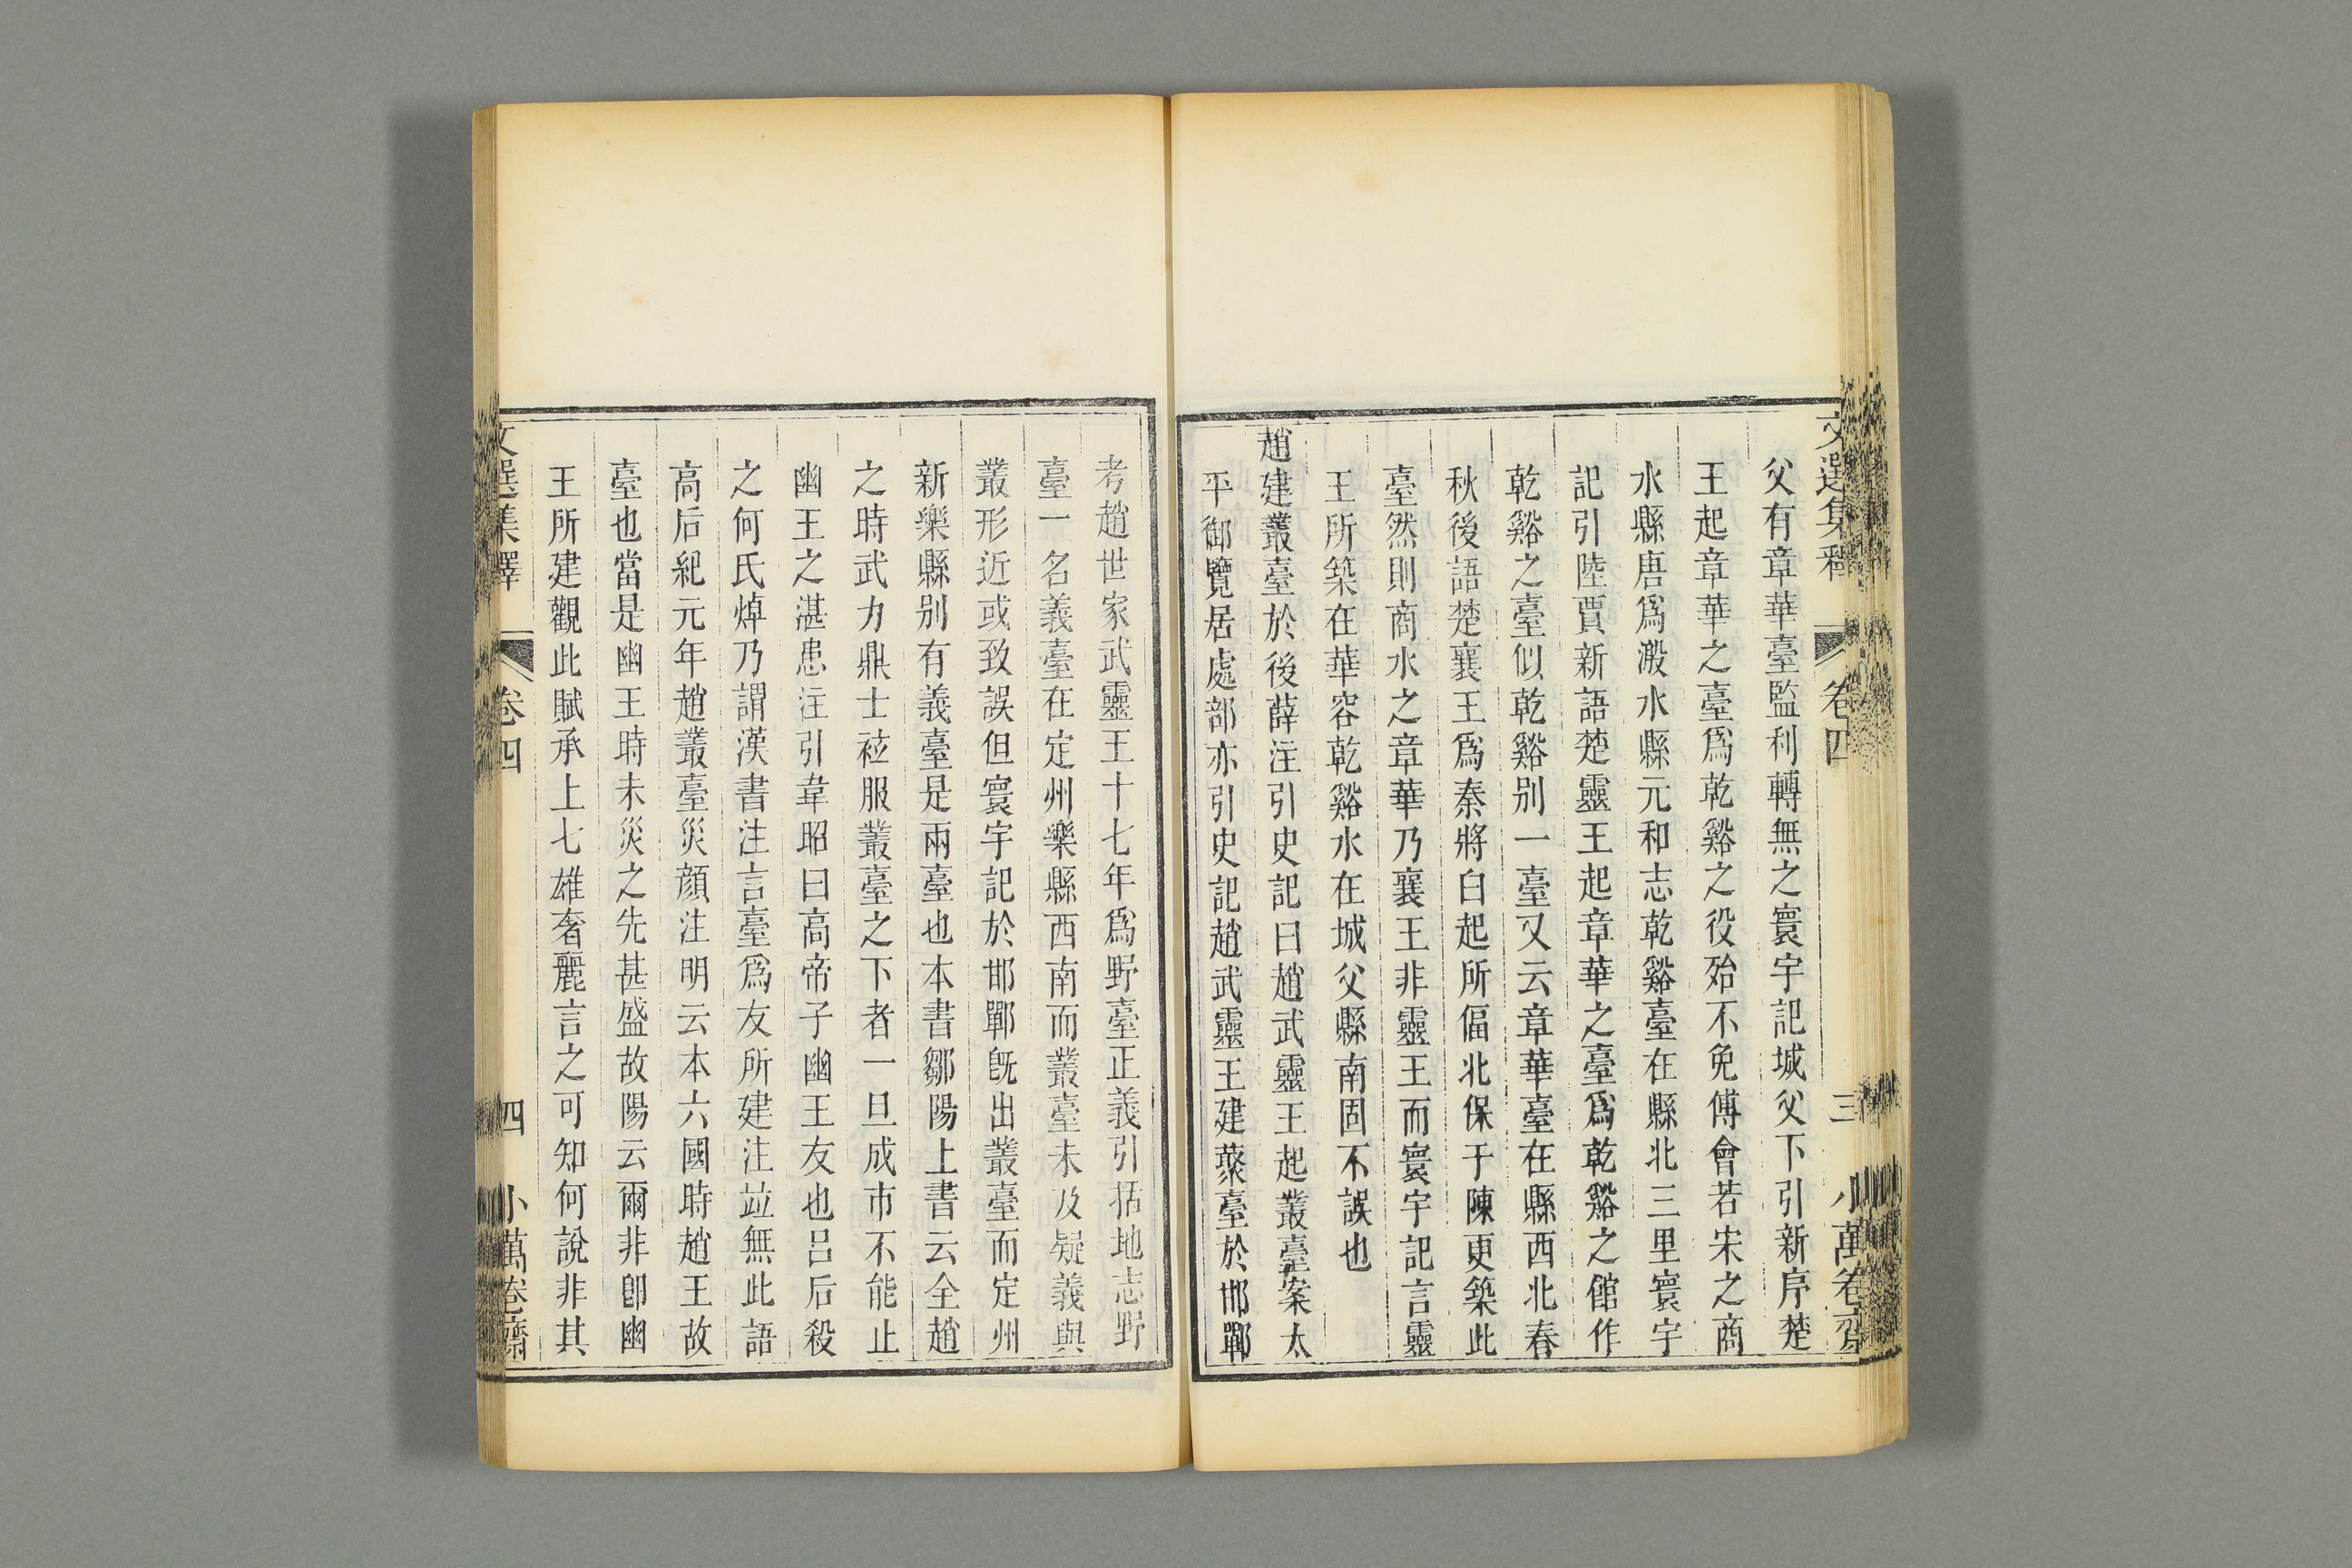 文選集釋 卷四 三 小萬卷齋
父有章華臺監利轉無之寰宇記城父下引新序楚
王起章華之臺爲乾谿之役殆不免傅會若宋之商
水縣唐爲溵水縣元和志乾谿臺在縣北三里寰宇
記引陸賈新語楚靈王起章華之臺爲乾谿之館作
乾谿之臺似乾谿别一臺又云章華臺在縣西北春
秋後語楚襄王爲秦將白起所偪北保于陳更築此
臺然則商水之章華乃襄王非靈王而寰宇記言靈
王所築在華容乾谿水在城父縣南固不誤也
趙建叢臺於後薛注引史記曰趙武靈王起叢臺案太
平御覽居處部亦引史記趙武靈王建藂臺於邯鄲
考趙世家武靈王十七年爲野臺正義引括地志野
臺一名義臺在定州樂縣西南而叢臺未及疑義與
叢形近或致誤但寰宇記於邯鄲旣出叢臺而定州
新樂縣别有義臺是兩臺也本書鄒陽上書云全趙
之時武力鼎士袨服叢臺之下者一旦成市不能止
幽王之湛患注引韋昭曰高帝子幽王友也呂后殺
之何氏焯乃謂漢書注言臺爲友所建注竝無此語
高后紀元年趙叢臺災顏注明云本六國時趙王故
臺也當是幽王時未災之先甚盛故陽云爾非卽幽
王所建觀此賦承上七雄奢麗言之可知何說非其
文選集釋 卷四 四 小萬卷齋